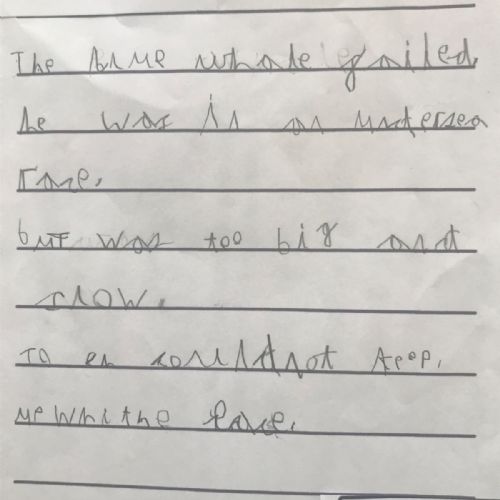 The blue whale failed
he was in an undersea
race.
but was too big and
slow.
couldnot keep.
the pace.